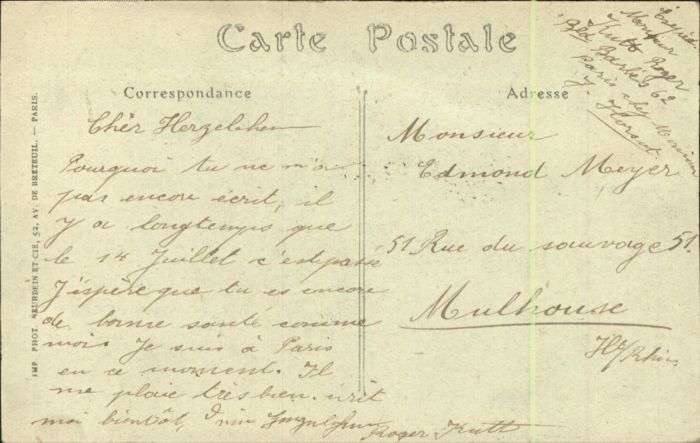 Carte Postale
Correspondance
Chèr Herzelchen
Pourquoi tu ne m'a
pas encore écrit, il
y a longtemps que
le 14 Juillet c'est passé
J'éspère que tu es encore
de bonne santé comme
moi. Je suis à Paris
en ce moment. Il
me plaie très bien. écrit
moi bientôt,
Roger Kutt
Adresse
Monsieur
Edmond Meyer
51 Rue du sauvage 51.
Mulhouse
Ht/Rhin
Monsieur
Kutt Roger
Bld Barbès 62
Paris chez Monsieur
IMP. PHOT. NEURDEIN ET CIE, 52, AV. DE BRETEUIL. — PARIS.